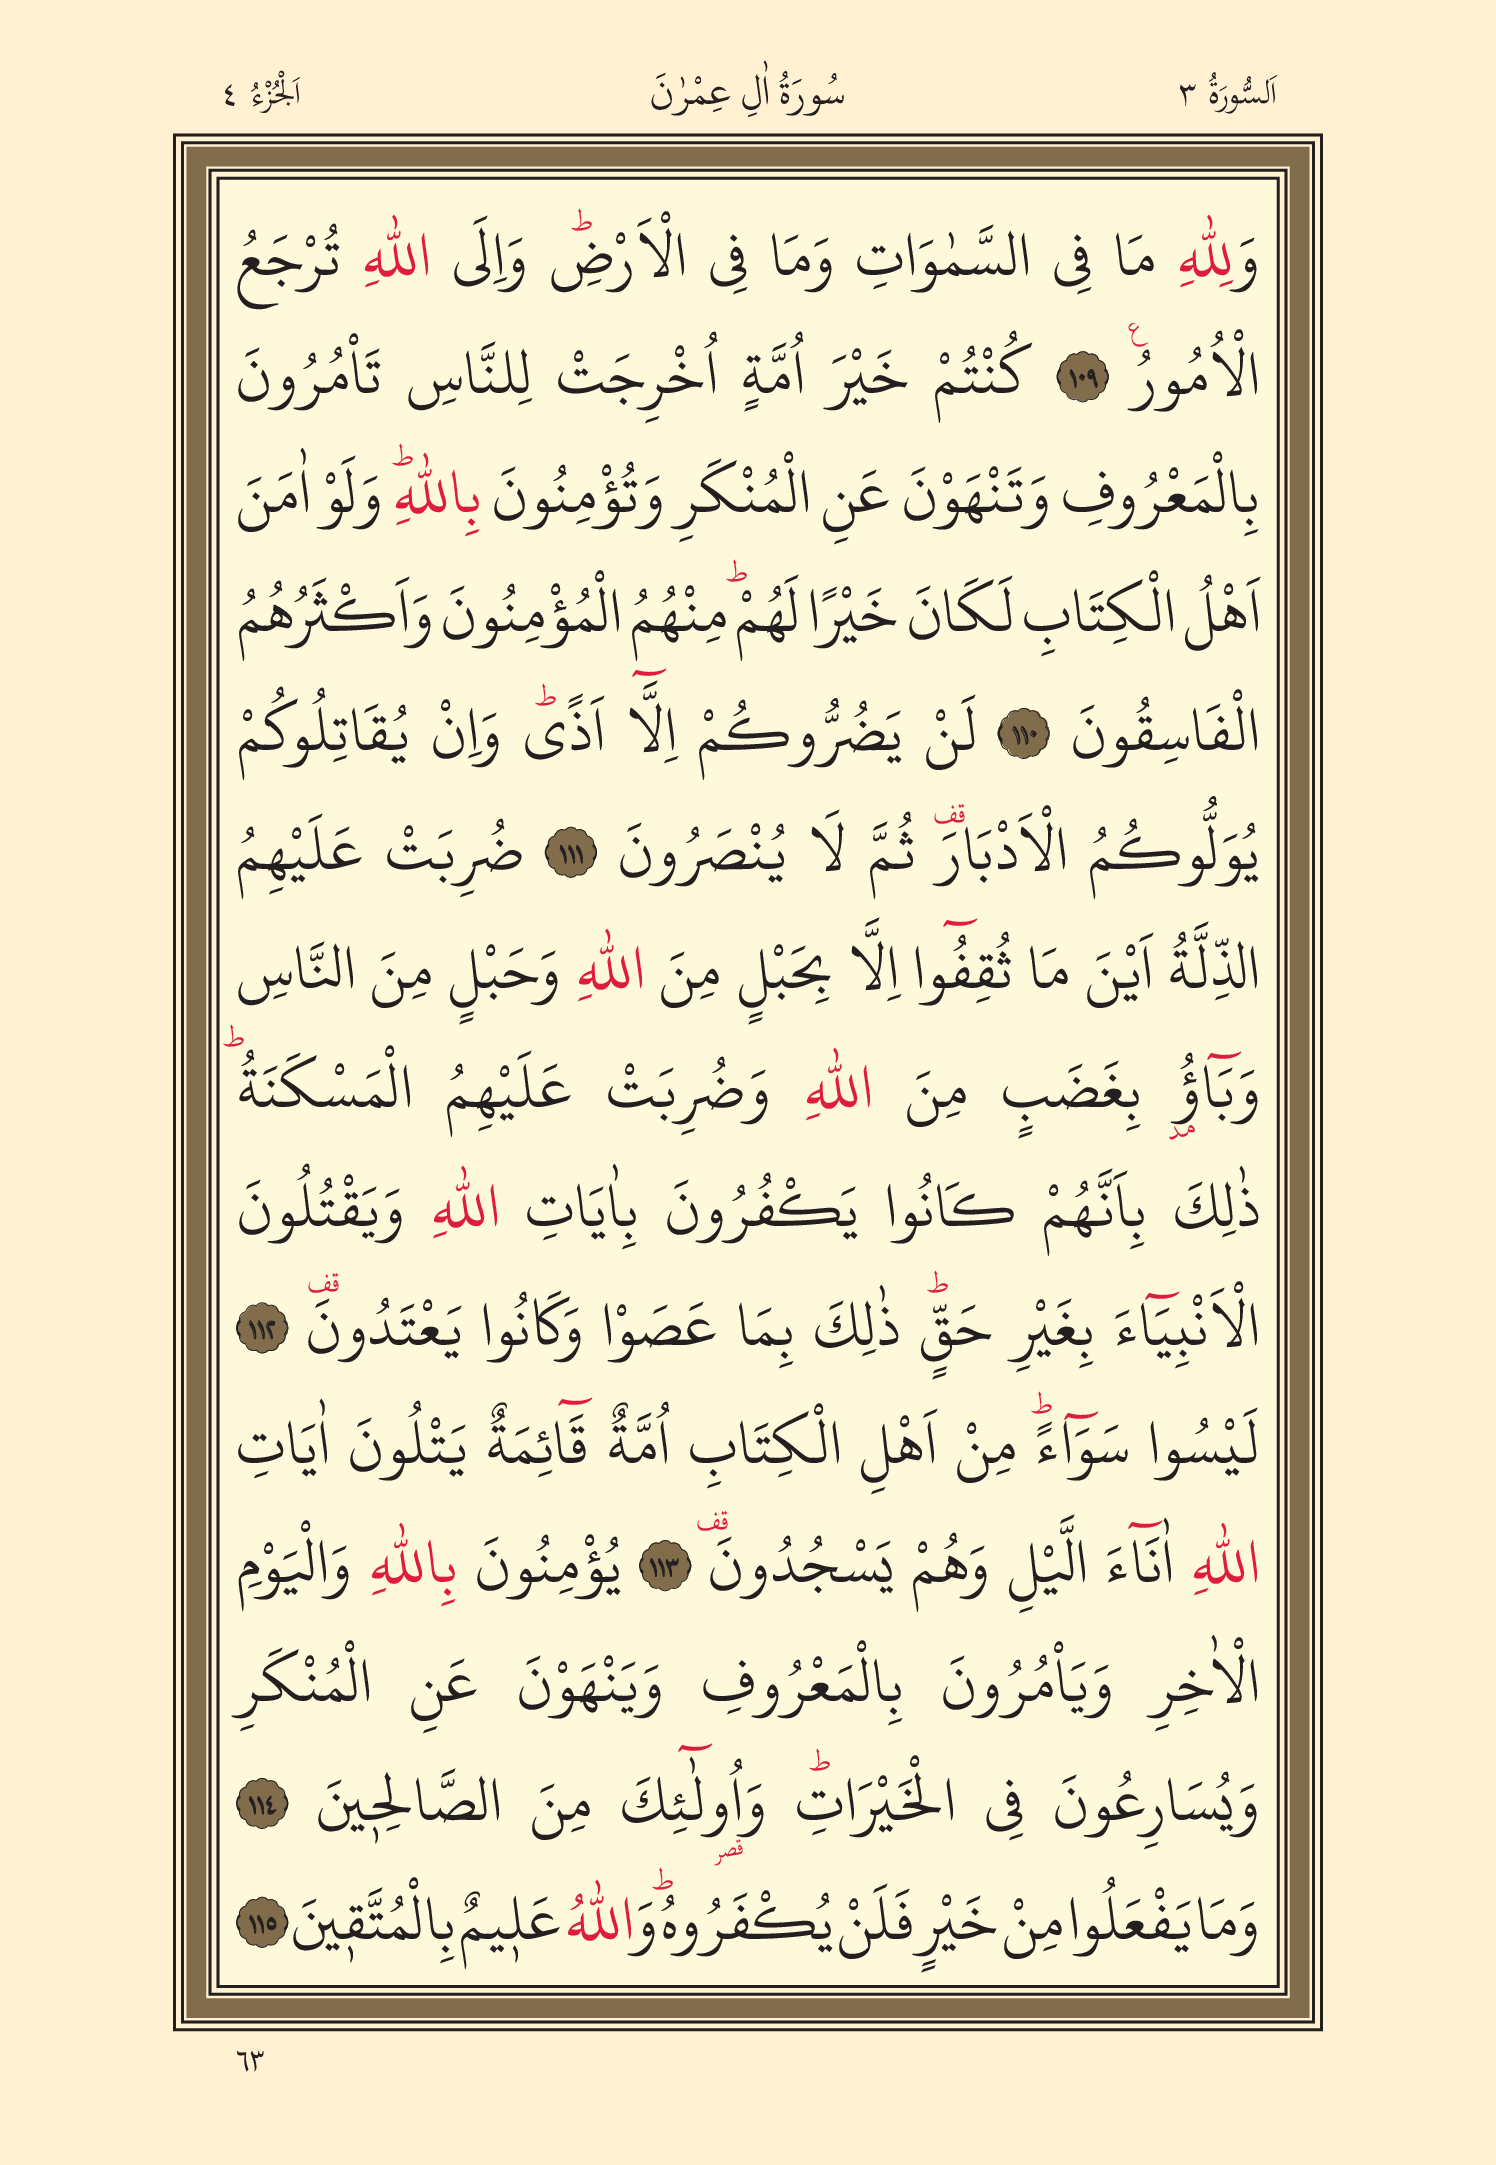 اَلسُّورَةُ ٣ سُورَةُ اٰلِ عِمْرٰنَ اَلْجُزْءُ ٤
وَلِلّٰهِ مَا فِى السَّمٰوَاتِ وَمَا فِى الْاَرْضِۜ وَاِلَى اللّٰهِ تُرْجَعُ
الْاُمُورُ۟ ﴿١٠٩﴾ كُنْتُمْ خَيْرَ اُمَّةٍ اُخْرِجَتْ لِلنَّاسِ تَأْمُرُونَ
بِالْمَعْرُوفِ وَتَنْهَوْنَ عَنِ الْمُنْكَرِ وَتُؤْمِنُونَ بِاللّٰهِۜ وَلَوْ اٰمَنَ
اَهْلُ الْكِتَابِ لَكَانَ خَيْرًا لَهُمْۜ مِنْهُمُ الْمُؤْمِنُونَ وَاَكْثَرُهُمُ
الْفَاسِقُونَ ﴿١١٠﴾ لَنْ يَضُرُّوكُمْ اِلَّٓا اَذًىۜ وَاِنْ يُقَاتِلُوكُمْ
يُوَلُّوكُمُ الْاَدْبَارَ۠ ثُمَّ لَا يُنْصَرُونَ ﴿١١١﴾ ضُرِبَتْ عَلَيْهِمُ
الذِّلَّةُ اَيْنَ مَا ثُقِفُٓوا اِلَّا بِحَبْلٍ مِنَ اللّٰهِ وَحَبْلٍ مِنَ النَّاسِ
وَبَٓاؤُ۫ بِغَضَبٍ مِنَ اللّٰهِ وَضُرِبَتْ عَلَيْهِمُ الْمَسْكَنَةُۜ
ذٰلِكَ بِاَنَّهُمْ كَانُوا يَكْفُرُونَ بِاٰيَاتِ اللّٰهِ وَيَقْتُلُونَ
الْاَنْبِيَٓاءَ بِغَيْرِ حَقٍّۜ ذٰلِكَ بِمَا عَصَوْا وَكَانُوا يَعْتَدُونَ۠ ﴿١١٢﴾
لَيْسُوا سَوَٓاءًۜ مِنْ اَهْلِ الْكِتَابِ اُمَّةٌ قَٓائِمَةٌ يَتْلُونَ اٰيَاتِ
اللّٰهِ اٰنَٓاءَ الَّيْلِ وَهُمْ يَسْجُدُونَ۠ ﴿١١٣﴾ يُؤْمِنُونَ بِاللّٰهِ وَالْيَوْمِ
الْاٰخِرِ وَيَأْمُرُونَ بِالْمَعْرُوفِ وَيَنْهَوْنَ عَنِ الْمُنْكَرِ
وَيُسَارِعُونَ فِى الْخَيْرَاتِۜ وَاُو۬لٰٓئِكَ مِنَ الصَّالِح۪ينَ ﴿١١٤﴾
وَمَا يَفْعَلُوا مِنْ خَيْرٍ فَلَنْ يُكْفَرُوهُۜ وَاللّٰهُ عَل۪يمٌ بِالْمُتَّق۪ينَ ﴿١١٥﴾
٦٣